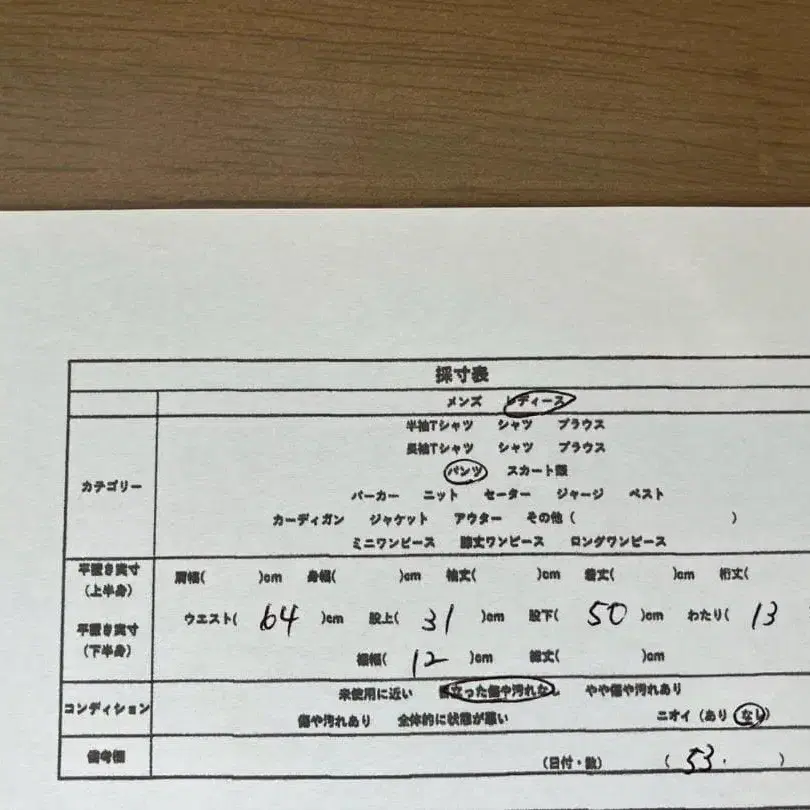 採寸表
メンズ レディース
半袖Tシャツ シャツ ブラウス
長袖Tシャツ シャツ ブラウス
カテゴリー
パンツ スカート類
パーカー ニット セーター ジャージ ベスト
カーディガン ジャケット アウター その他（ ）
ミニワンピース 膝丈ワンピース ロングワンピース
平置き実寸
（上半身）
肩幅( )cm 身幅( )cm 袖丈( )cm 着丈( )cm 裄丈(
平置き実寸
（下半身）
ウエスト( 64 )cm 股上( 31 )cm 股下( 50 )cm わたり( 13
裾幅( 12 )cm 総丈( )cm
コンディション
未使用に近い 目立った傷や汚れなし やや傷や汚れあり
傷や汚れあり 全体的に状態が悪い ニオイ（あり なし）
備考欄
（日付・数） （ 53. ）